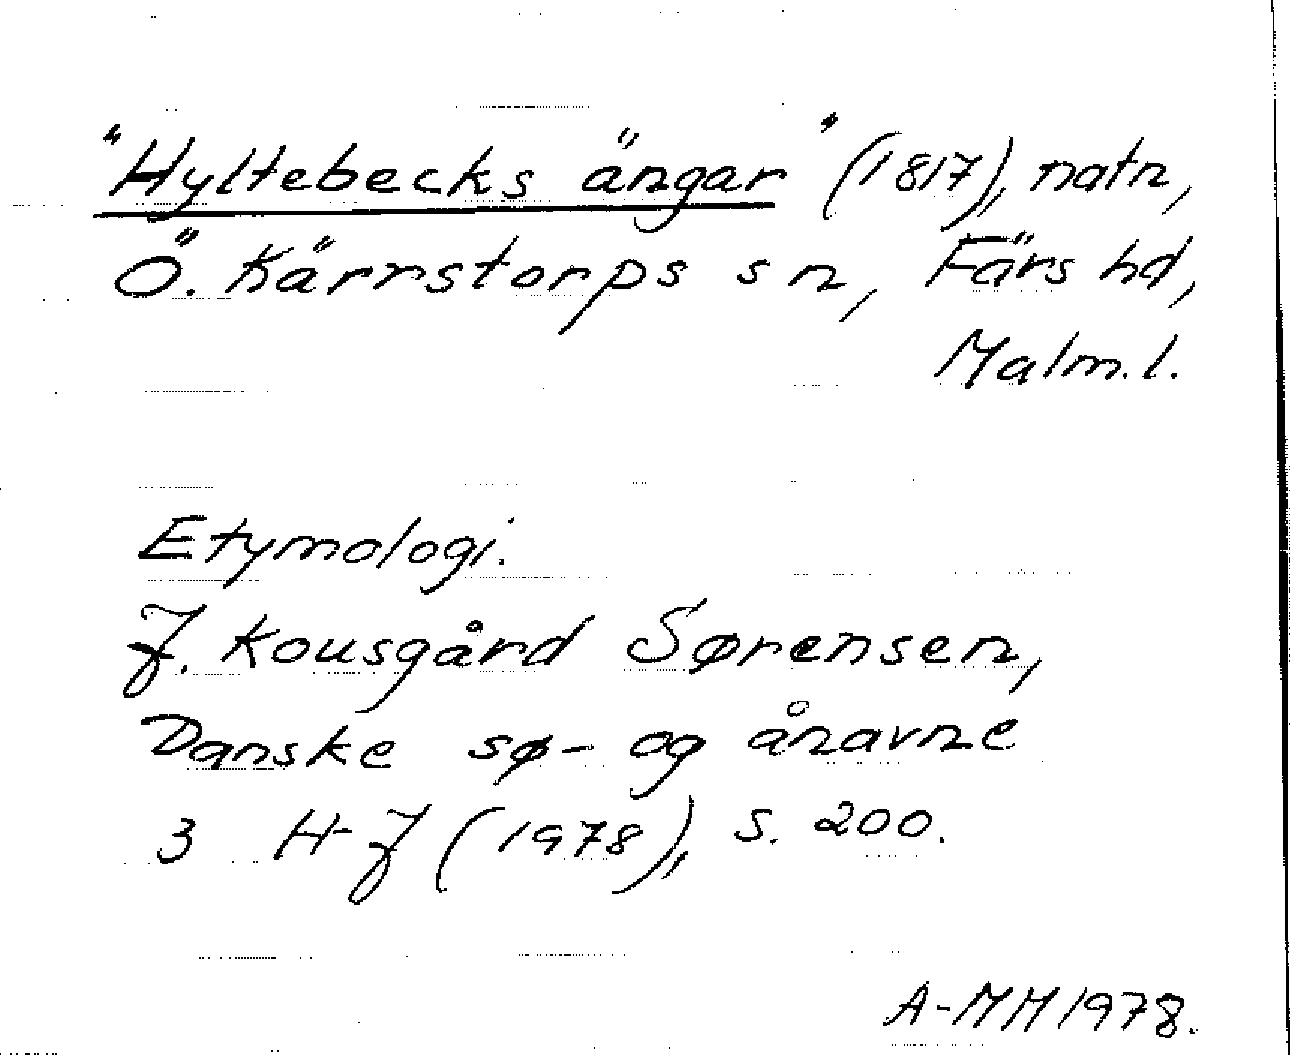 "Hyltebecks ängar" (1817), natn,
Ö. Kärrstorps sn, Färs hd,
Malm. l.
Etymologi.
J. Kousgård Sørensen,
Danske sø- og ånavne
3 H-J (1978), s. 200.
A-MM 1978.